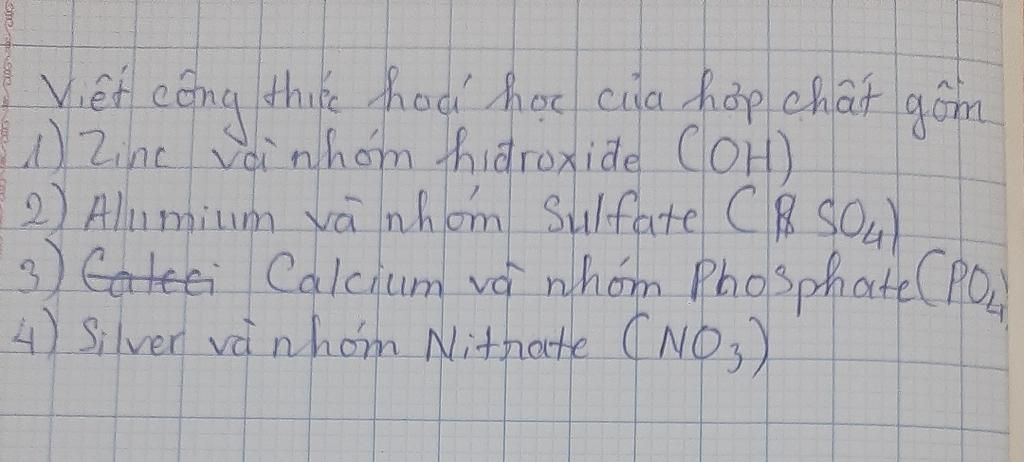 Viết công thức hoá học của hợp chất gồm
1) Zinc với nhóm hidroxide (OH)
2) Alumium và nhóm Sulfate (SO4)
3) Calcium và nhóm Phosphate (PO4)
4) Silver và nhóm Nitrate (NO3)